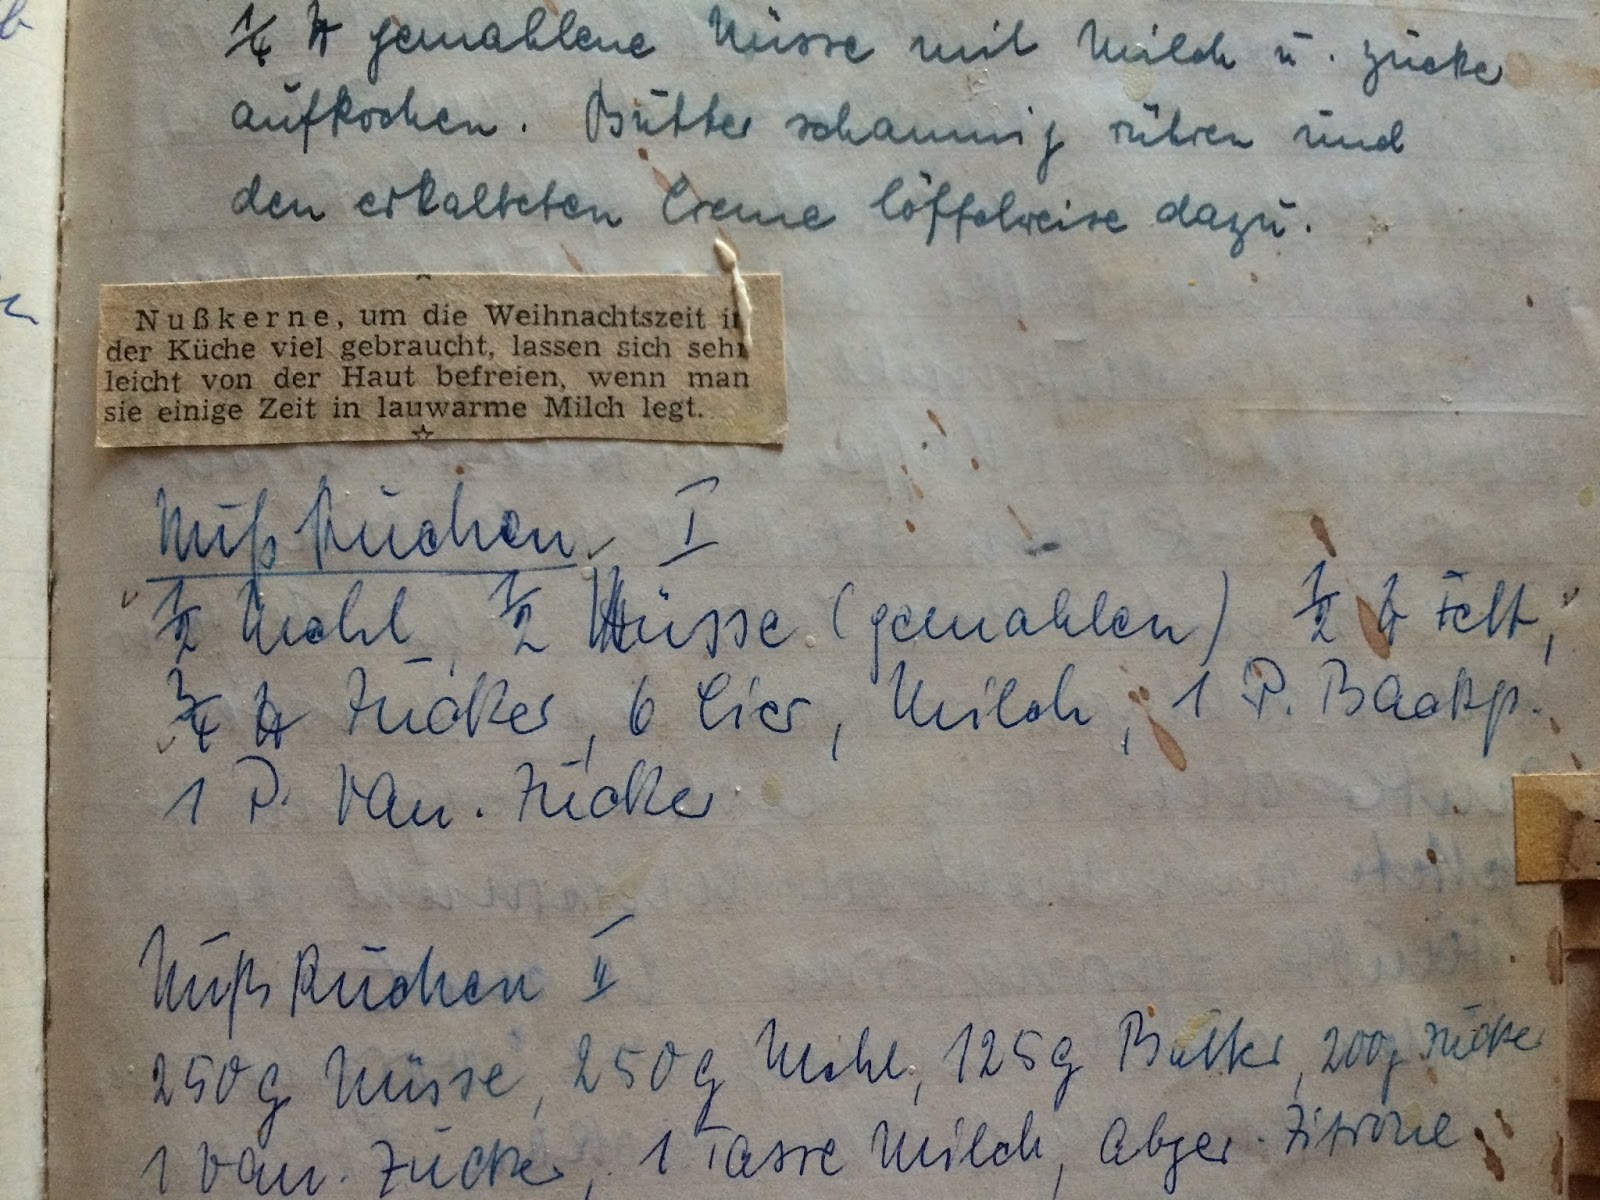 1/4 ℔ gemahlene Nüsse mit Milch u. Zucker
aufkochen. Butter schaumig rühren und
den erkalteten Creme löffelweise dazu.
Nußkerne, um die Weihnachtszeit in
der Küche viel gebraucht, lassen sich sehr
leicht von der Haut befreien, wenn man
sie einige Zeit in lauwarme Milch legt.
Nuß Kuchen I
1/2 Mehl, 1/2 Nüsse (gemahlen) 1/2 ℔ Fett,
3/4 ℔ Zucker, 6 Eier, Milch, 1 P. Backp.
1 P. Van. Zucker
Nuß Kuchen II
250g Nüsse, 250g Mehl, 125g Butter, 200g Zucker
1 Van. Zucker, 1 Tasse Milch, Abger. Zitrone